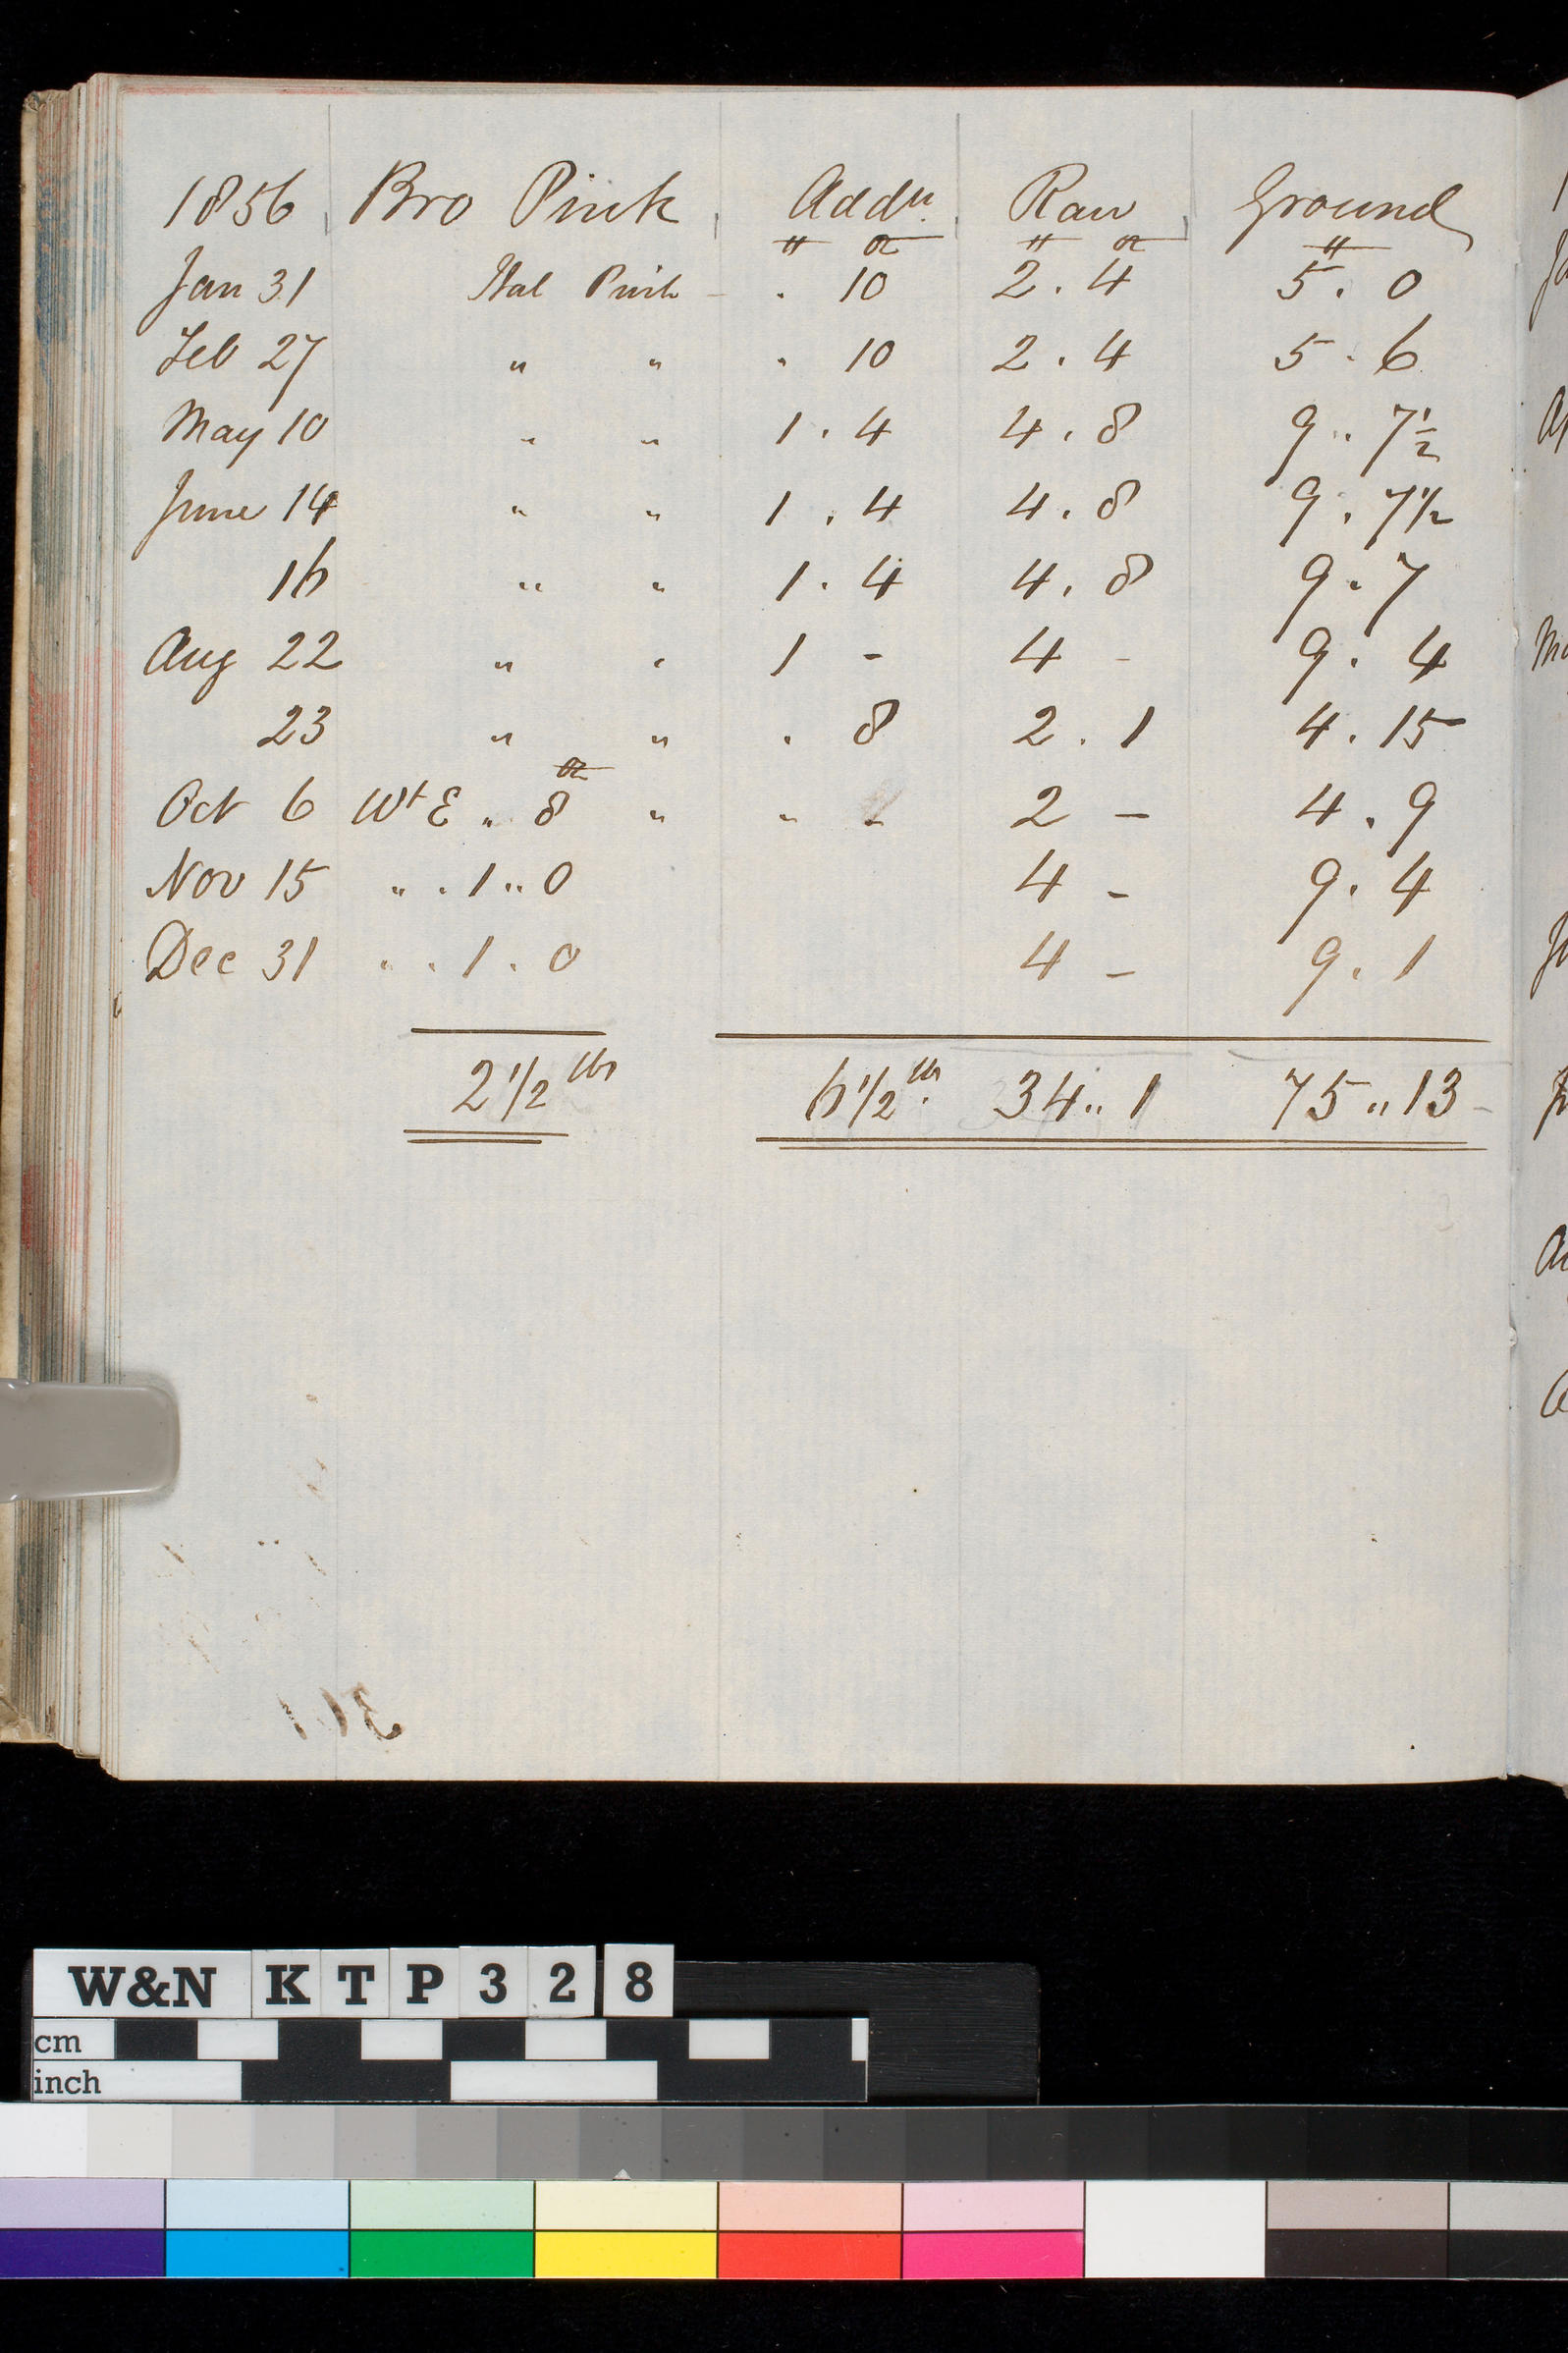 1856 Bro Pink Addn. Raw Ground
lb oz lb oz lb
Jan 31 Ital Pink - . 10 2 . 4 5 . 0
Feb 27 " " . 10 2 . 4 5 . 6
May 10 " " 1 . 4 4 . 8 9 . 7½
June 14 " " 1 . 4 4 . 8 9 . 7½
16 " " 1 . 4 4 . 8 9 . 7
Aug 22 " " 1 - 4 - 9 . 4
23 " " . 8 2 . 1 4 . 15
oz
Oct 6 Wt E " 8 " " " 2 - 4 . 9
Nov 15 " . 1 " 0 4 - 9 . 4
Dec 31 " . 1 . 0 4 - 9 . 1
2½ lbs 6½ lb. 34 " 1 75 " 13 -
W&N KTP328
cm
inch